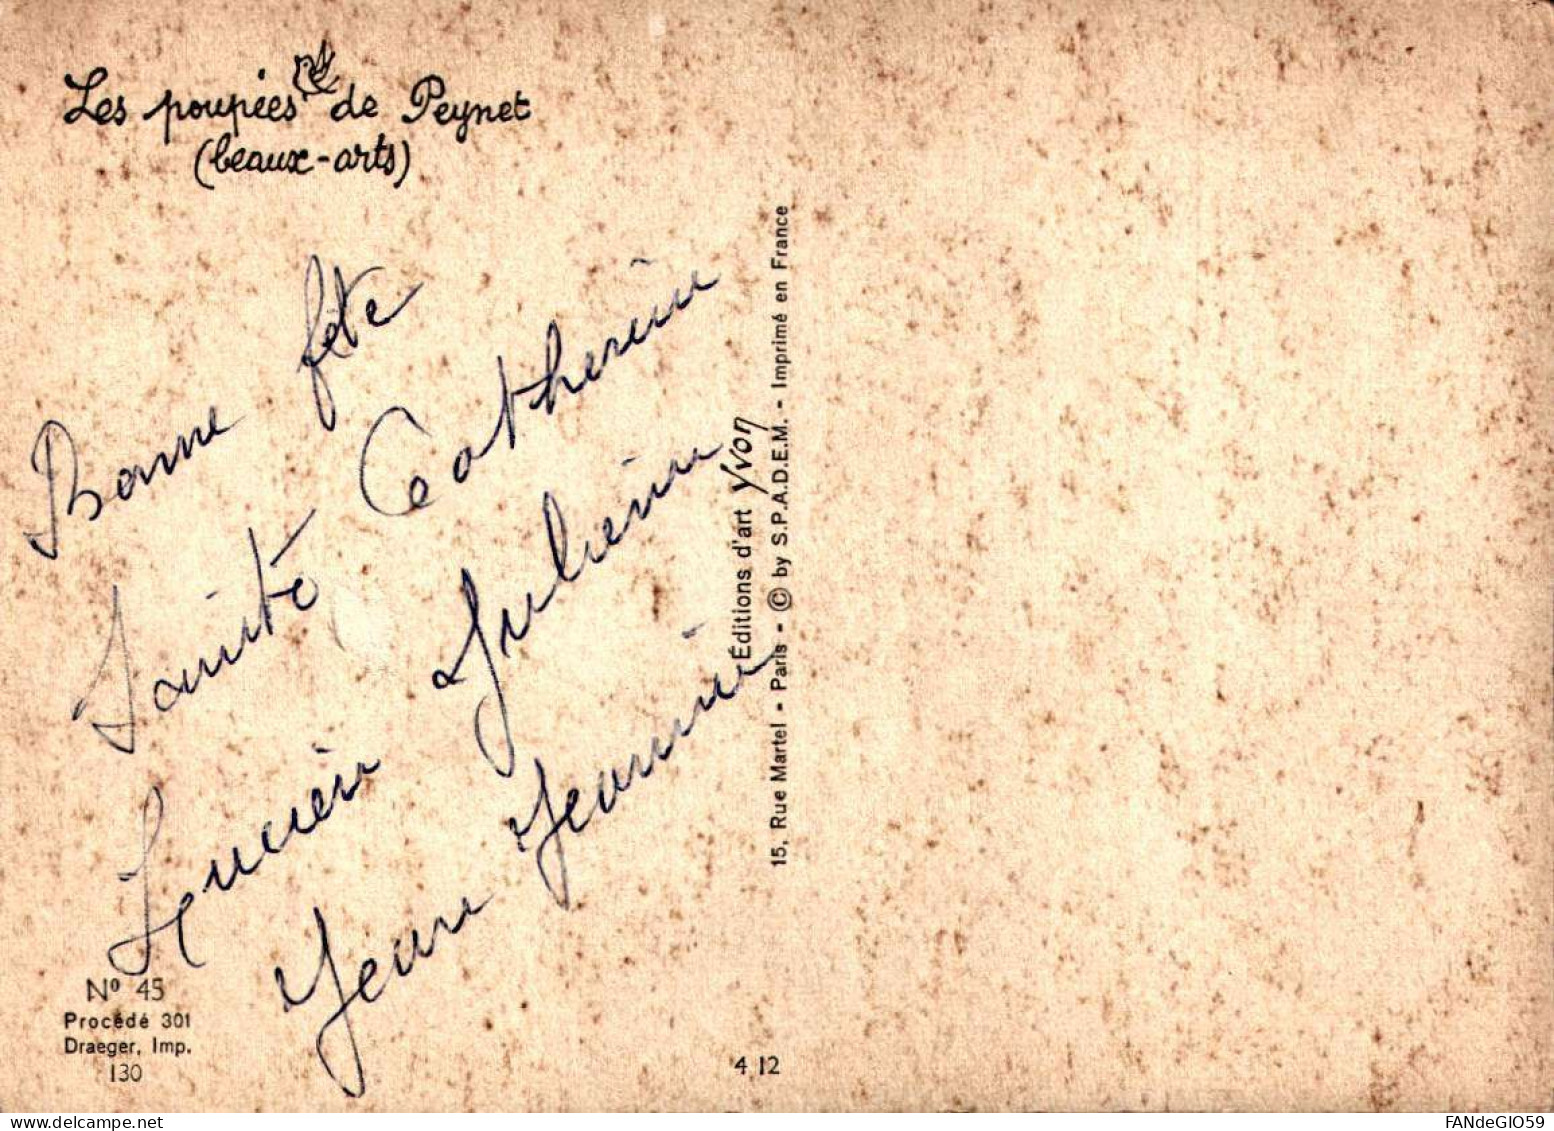 Les poupées de Peynet
(beaux-arts)
Bonne fête
Sainte Catherine
Lucien Julienne
Jeanne Jeannine
Nº 45
Procédé 301
Draeger, Imp.
130
Éditions d'art Yvon
15, Rue Martel - Paris - © by S.P.A.D.E.M. - Imprimé en France
4 12
FANdeGIO59